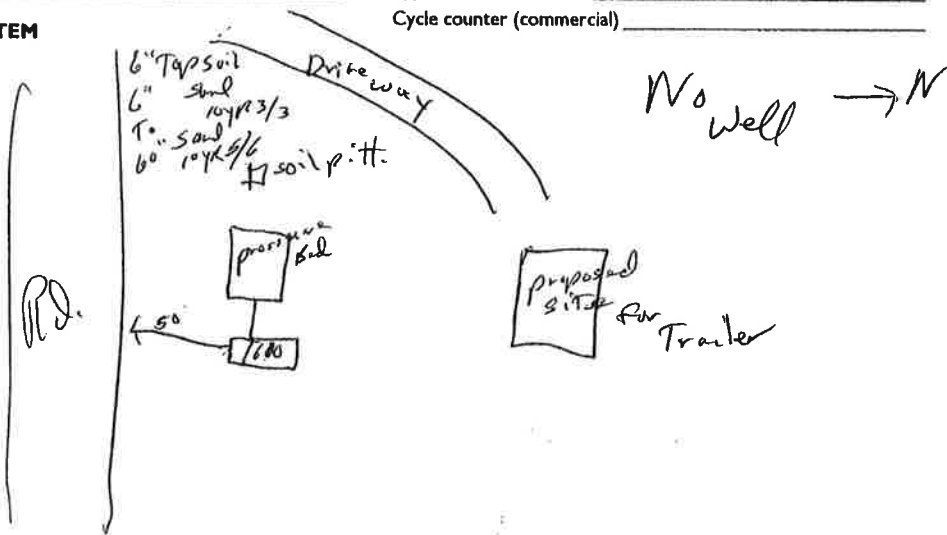 TEM
Cycle counter (commercial)
6" Top soil
6" sand
10yR 3/3
To sand
60 10yR 5/6
soil pitt.
Driveway
No Well → N
Rd.
pressure
Bed
50'
proposed
site for
Trailer